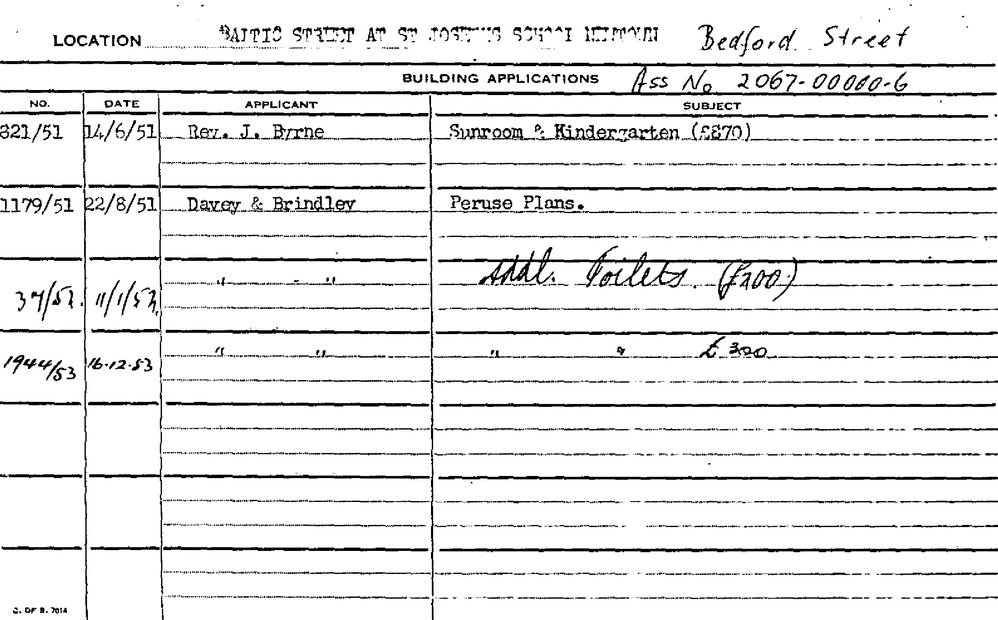 LOCATION BALTIC STREET AT ST JOSEPH'S SCHOOL NEWTOWN Bedford Street
BUILDING APPLICATIONS Ass No 2067-00000-6
NO. DATE APPLICANT SUBJECT
821/51 14/6/51 Rev. J. Byrne Sunroom & Kindergarten (£870)
1179/51 22/8/51 Davey & Brindley Peruse Plans.
37/52. 11/1/52. " - " Addl. Toilets. (£200)
1944/53 16.12.53 " " " " £300
C. OF B. 7014